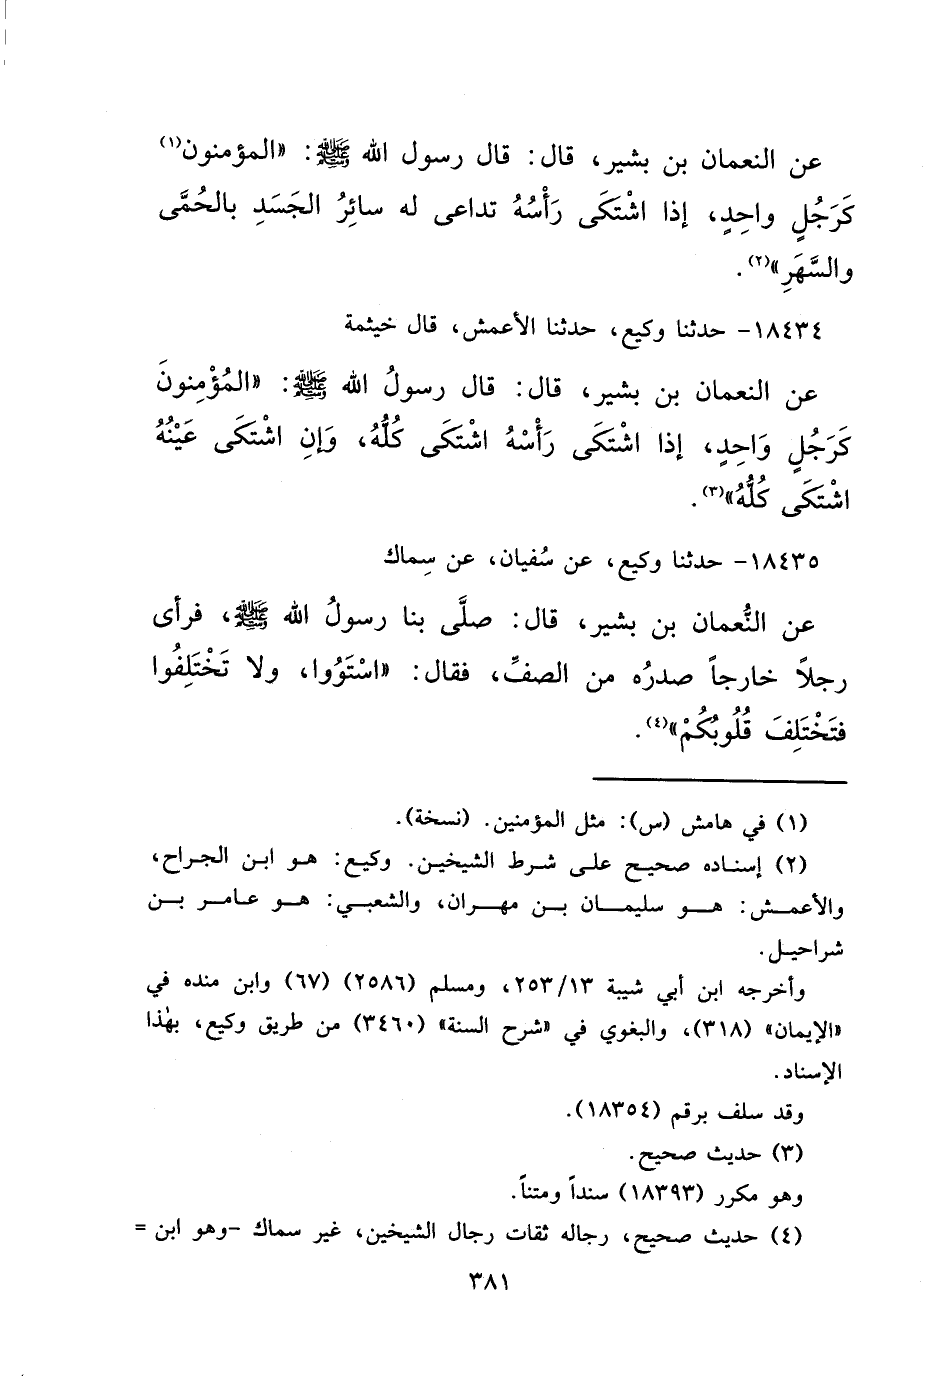 عن النعمان بن بشير، قال: قال رسول الله ﷺ: «المؤمنون(١)
كَرَجُلٍ واحِدٍ، إذا اشْتَكَى رَأْسُهُ تداعى له سائِرُ الجَسَدِ بالحُمَّى
والسَّهَرِ»(٢).
١٨٤٣٤- حدثنا وكيع، حدثنا الأعمش، قال خيثمة
عن النعمان بن بشير، قال: قال رسولُ الله ﷺ: «المُؤْمِنونَ
كَرَجُلٍ وَاحِدٍ، إذا اشْتَكَى رَأْسُهُ اشْتَكَى كُلُّهُ، وَإنِ اشْتَكَى عَيْنُهُ
اشْتَكَى كُلُّهُ»(٣).
١٨٤٣٥- حدثنا وكيع، عن سُفيان، عن سِماك
عن النُّعمان بن بشير، قال: صلَّى بنا رسولُ الله ﷺ، فرأى
رجلاً خارجاً صدرُه من الصفِّ، فقال: «اسْتَوُوا، ولا تَخْتَلِفُوا
فتَخْتَلِفَ قُلُوبُكُمْ»(٤).
(١) في هامش (س): مثل المؤمنين. (نسخة).
(٢) إسناده صحيح على شرط الشيخين. وكيع: هو ابن الجراح،
والأعمش: هو سليمان بن مهران، والشعبي: هو عامر بن
شراحيل.
وأخرجه ابن أبي شيبة ٢٥٣/١٣، ومسلم (٢٥٨٦) (٦٧) وابن منده في
«الإيمان» (٣١٨)، والبغوي في «شرح السنة» (٣٤٦٠) من طريق وكيع، بهٰذا
الإسناد.
وقد سلف برقم (١٨٣٥٤).
(٣) حديث صحيح.
وهو مكرر (١٨٣٩٣) سنداً ومتناً.
(٤) حديث صحيح، رجاله ثقات رجال الشيخين، غير سماك -وهو ابن =
٣٨١